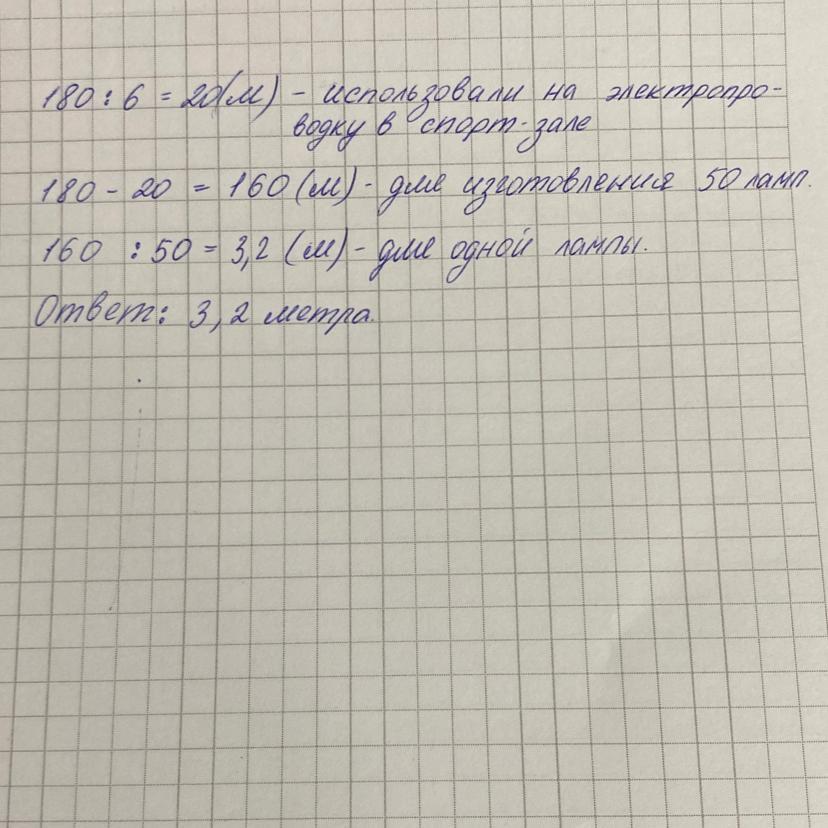 180 : 6 = 20(м) - использовали на электропро-
водку в спорт-зале
180 - 20 = 160 (м) - для изготовления 50 ламп.
160 : 50 = 3,2 (м) - для одной лампы.
Ответ: 3,2 метра.